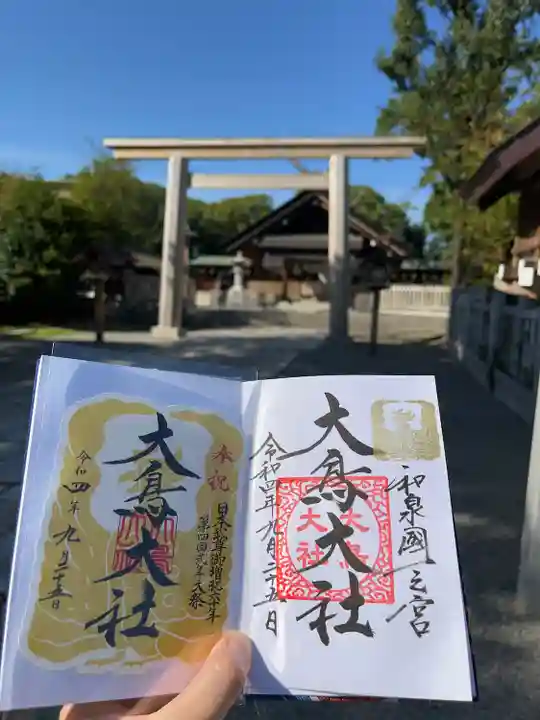 和泉國一之宮
大鳥大社
大鳥
大社
令和四年九月二十五日
奉祝
日本武尊御増祀六十年
第四回式年大祭
大鳥大社
令和四年九月二十五日